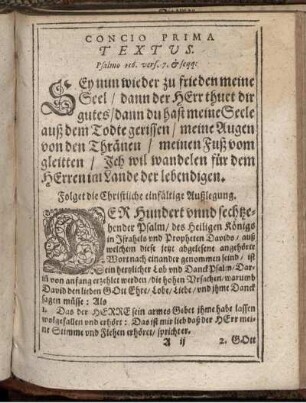 CONCIO PRIMA
TEXTUS.
Psalmo 116. vers. 7. & seqq:
SEy nun wieder zu frieden meine
Seel / dann der HErr thuet dir
gutes / dann du hast meine Seele
auß dem Todte gerissen / meine Augen
von den Thränen / meinen Fuß vom
gleitten / Jch wil wandelen für dem
HErren im Lande der lebendigen.
Folget die Christliche einfältige Außlegung.
DER Hundert vnnd sechtze-
hender Psalm / des Heiligen Königs
in Israhels vnd Propheten Davids / auß
welchen diese jetzt abgelesene angehörte
Wort nach einander genommen seind / ist
ein hertzlicher Lob vnd Danck Psalm / Dar-
in von anfang erzehlet werden / die hohen Vrsachen / warumb
David den lieben GOtt Ehre / Lobe / Liebe / vnd jhme Danck
sagen müsse: Als
1. Das der HERRE sein armes Gebet jhme habe lassen
wolgefallen vnd erhört: Das ist mir lieb daß der HErr mei-
ne Stimme vnd Flehen erhöret / spricht er.
A ij 2. GOtt